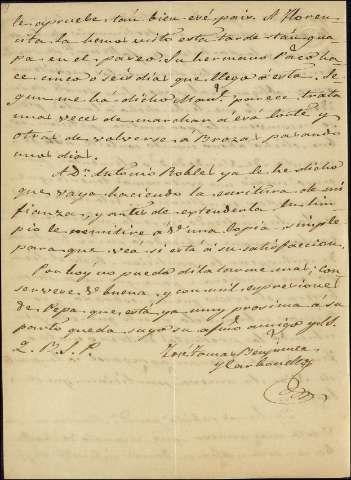 le apruebe tan bien ese pais. A Floren-
cita la hemos visto esta tarde tan gua
pa en el paseo. Su hermano Paco ha-
ce cinco o seis dias que llego á esta. Se
gun me há dicho Man.l parece trata
unas veces de marchar a esa Corte y
otras de volverse a Brozas pasando
unos dias.
A D.n Antonio Robles ya le he dicho
que vaya haciendo la escritura de mi
fianza, y antes de estenderla en lim
pio le remitiré a V. una copia simple
para que vea si está á su satisfaccion.
Por hoy no puedo dilatarme mas; con
servese V. bueno, y con mil expresiones
de Pepa que está ya muy proxima a su
parto queda suyo su afmo amigo y S.S.
Q. B. S. P.
José Tomas
y Carbonell